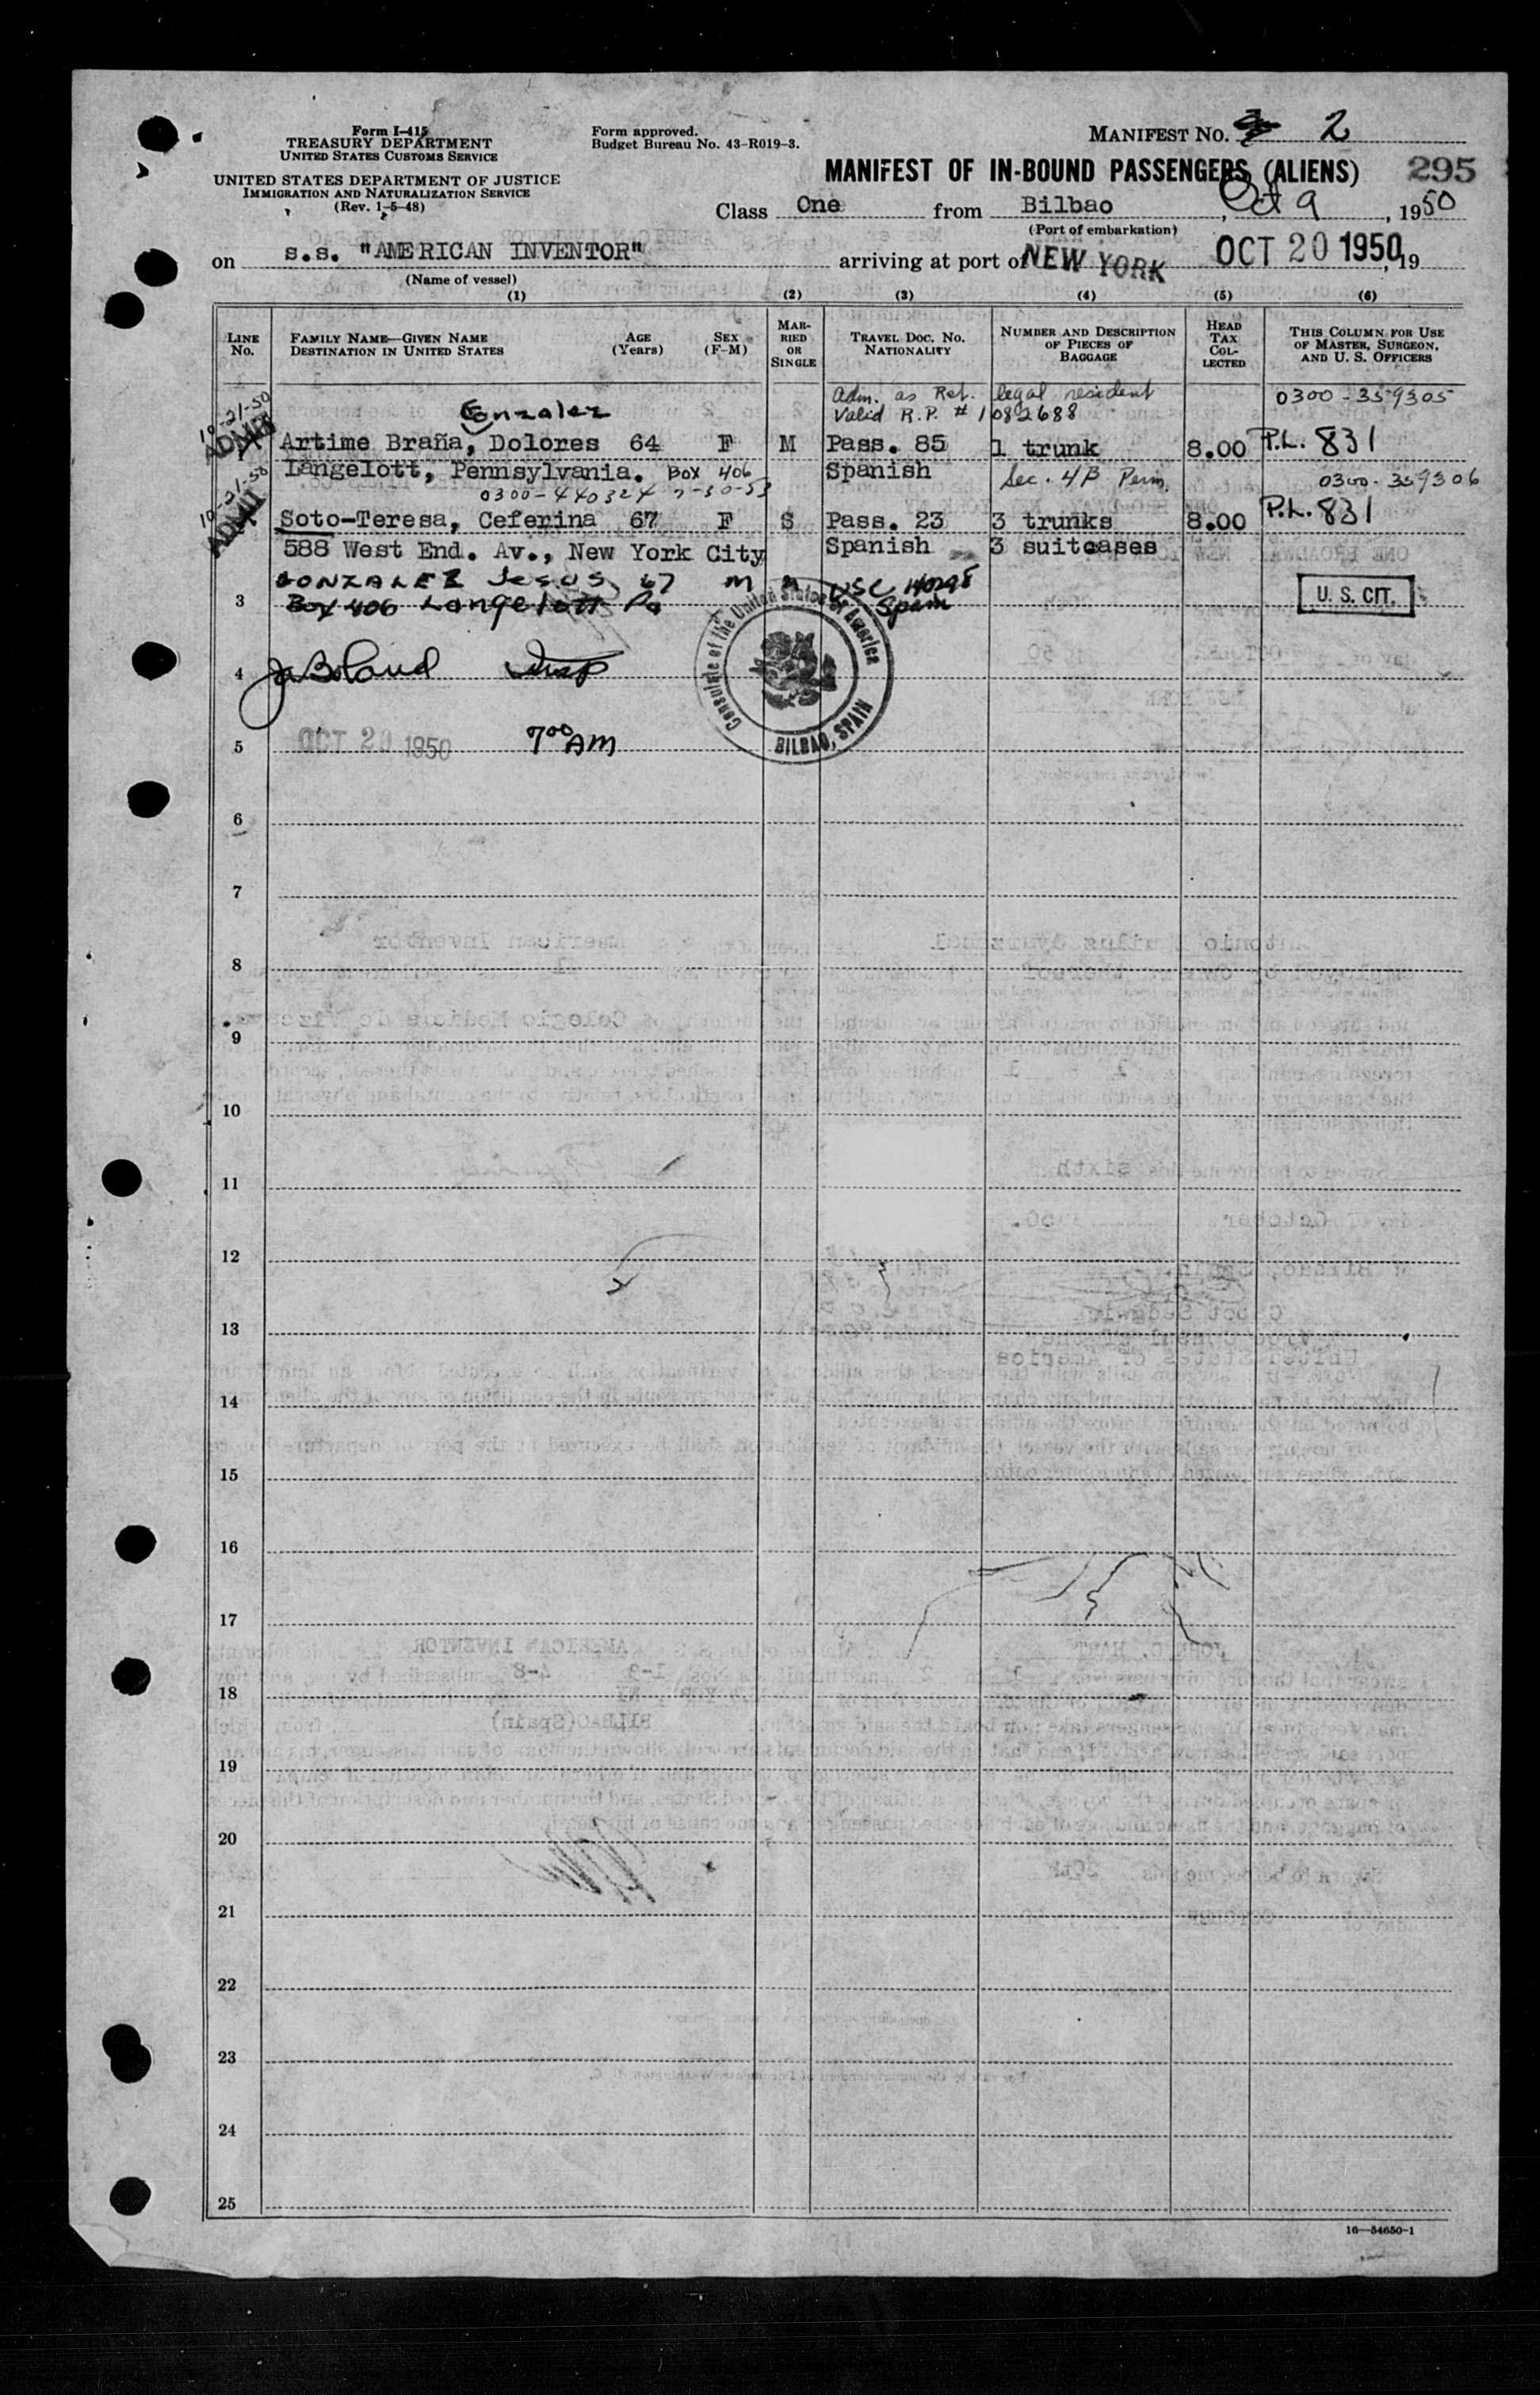 Form I-415
TREASURY DEPARTMENT
UNITED STATES CUSTOMS SERVICE
UNITED STATES DEPARTMENT OF JUSTICE
IMMIGRATION AND NATURALIZATION SERVICE
(Rev. 1-5-48)
Form approved.
Budget Bureau No. 43-R019-3.
MANIFEST NO. 2
MANIFEST OF IN-BOUND PASSENGERS (ALIENS) 295
Class One from Bilbao, Oct 9, 1950
(Port of embarkation)
on s.s. "AMERICAN INVENTOR" arriving at port of NEW YORK OCT 20 1950, 19
(Name of vessel)
(1) (2) (3) (4) (5) (6)
LINE No.
FAMILY NAME—GIVEN NAME
DESTINATION IN UNITED STATES
AGE (Years)
SEX (F-M)
MARRIED OR SINGLE
TRAVEL DOC. NO. NATIONALITY
NUMBER AND DESCRIPTION OF PIECES OF BAGGAGE
HEAD TAX COLLECTED
THIS COLUMN FOR USE OF MASTER, SURGEON, AND U. S. OFFICERS
Adm. as Ret. legal resident 0300-359305
Gonzalez Valid R.P. # 1082688
10-21-50 ADMIT
Artime Braña, Dolores 64 F M Pass. 85 1 trunk 8.00 P.L. 831
Langelott, Pennsylvania. Box 406 Spanish Sec. 4B Perm. 0300-359306
0300-440324
10-21-50 ADMIT
Soto-Teresa, Ceferina 67 F S Pass. 23 3 trunks 8.00 P.L. 831
588 West End. Av., New York City Spanish 3 suitcases
GONZALEZ Jesus 67 M M USC
3 Box 406 Langelott Pa Spain U. S. CIT.
Consulate of the United States of America
BILBAO, SPAIN
4 Boland Insp
5 OCT 20 1950 7 00 AM
6
7
8
9
10
11
12
13
14
15
16
17
18
19
20
21
22
23
24
25
16—54650-1